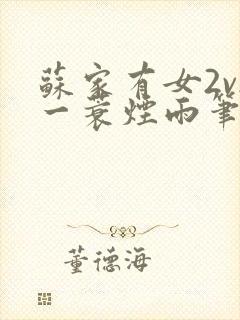 蘇家有女2v
一蓑煙雨筆
董德海